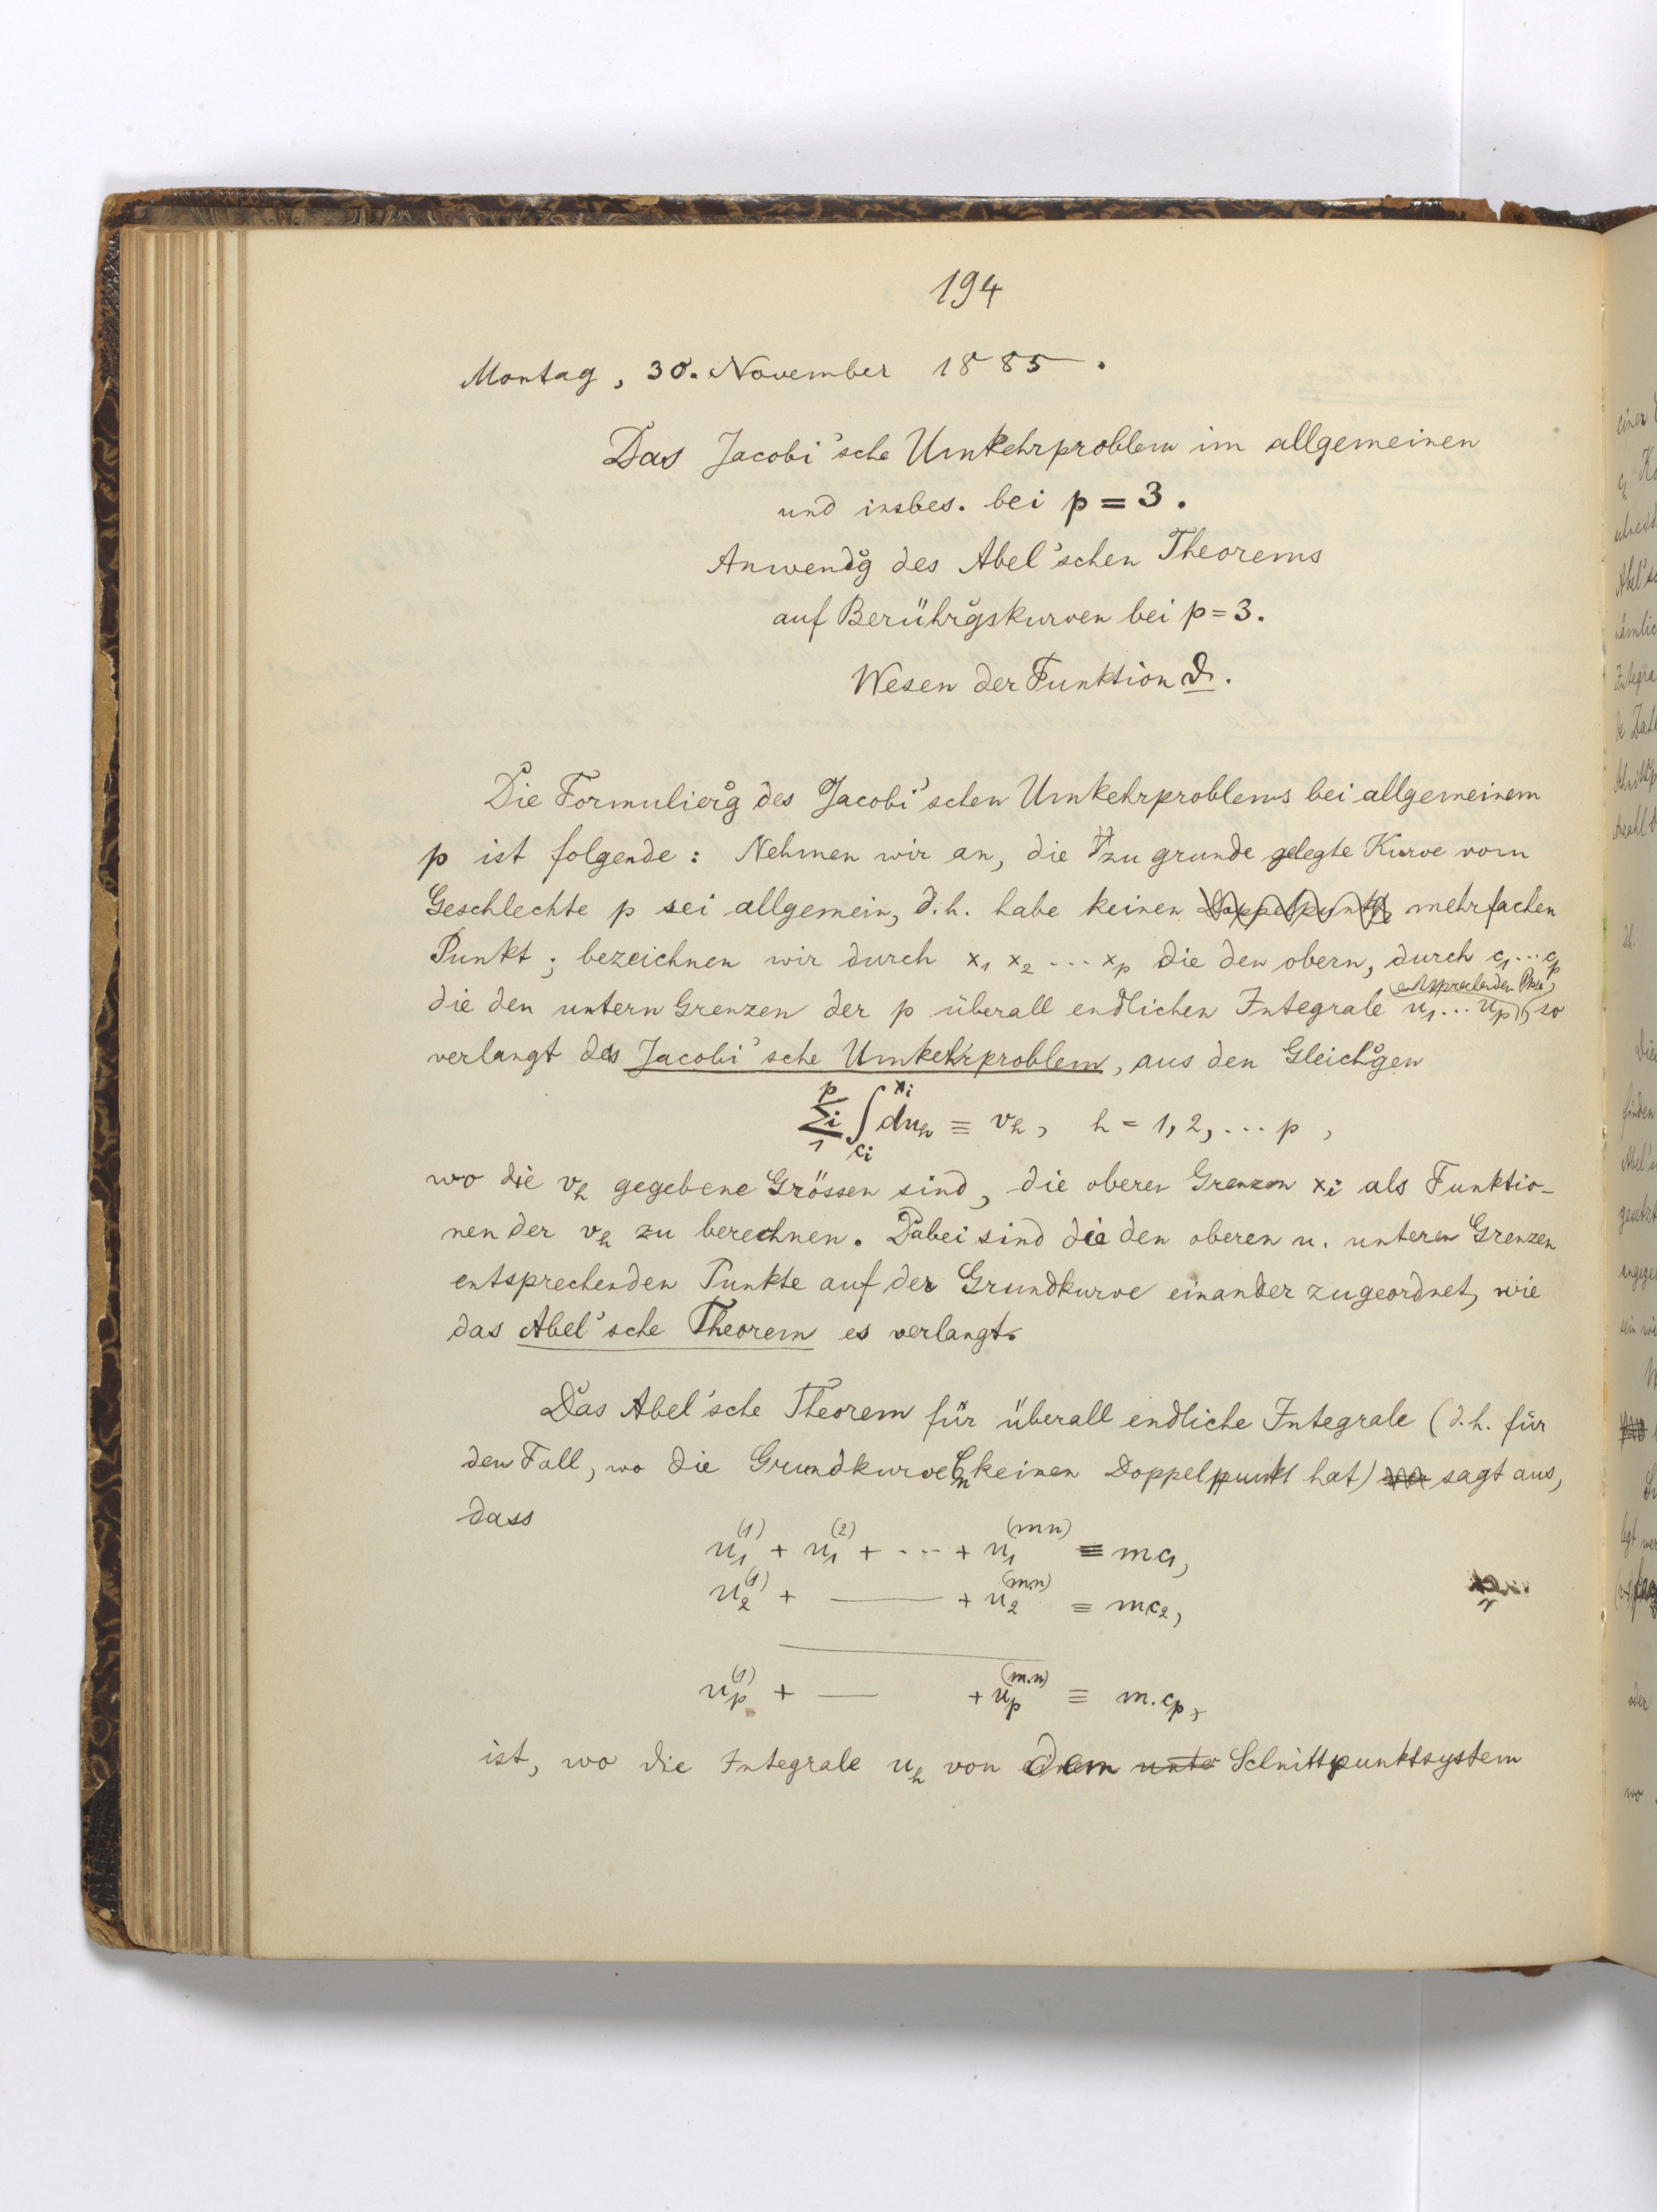 194
Montag, 30. November 1885.
Das Jacobi'sche Umkehrproblem im allgemeinen
und insbes. bei p = 3.
Anwendg des Abel'schen Theorems
auf Berührgskurven bei p = 3.
Wesen der Funktion ϑ.
Die Formulierg des Jacobi'schen Umkehrproblems bei allgemeinem
p ist folgende: Nehmen wir an, die zu grunde gelegte Kurve vom
Geschlechte p sei allgemein, d.h. habe keinen Doppelpunkt mehrfachen
Punkt; bezeichnen wir durch x₁ x₂ ... xₚ die den obern, durch c₁ ... cₚ
die den untern Grenzen der p überall endlichen Integrale u₁ ... uₚ entsprechenden Pkte, so
verlangt das Jacobi'sche Umkehrproblem, aus den Gleichgen
∑ᵢ₁ᵖ ∫_{cᵢ}^{xᵢ} duₕ ≡ vₕ, h = 1, 2, ... p,
wo die vₕ gegebene Grössen sind, die oberen Grenzen xᵢ als Funktio-
nen der vₕ zu berechnen. Dabei sind die den oberen u. unteren Grenzen
entsprechenden Punkte auf der Grundkurve einander zugeordnet, wie
das Abel'sche Theorem es verlangt.
Das Abel'sche Theorem für überall endliche Integrale (d.h. für
den Fall, wo die Grundkurve Cₙ keinen Doppelpunkt hat) sagt aus,
dass
u₁⁽¹⁾ + u₁⁽²⁾ + ... + u₁⁽ᵐⁿ⁾ ≡ mc₁,
u₂⁽¹⁾ + — + u₂⁽ᵐ·ⁿ⁾ ≡ mc₂,
uₚ⁽¹⁾ + — + uₚ⁽ᵐ·ⁿ⁾ ≡ m.cₚ,
ist, wo die Integrale uₕ von dem unte Schnittpunktsystem